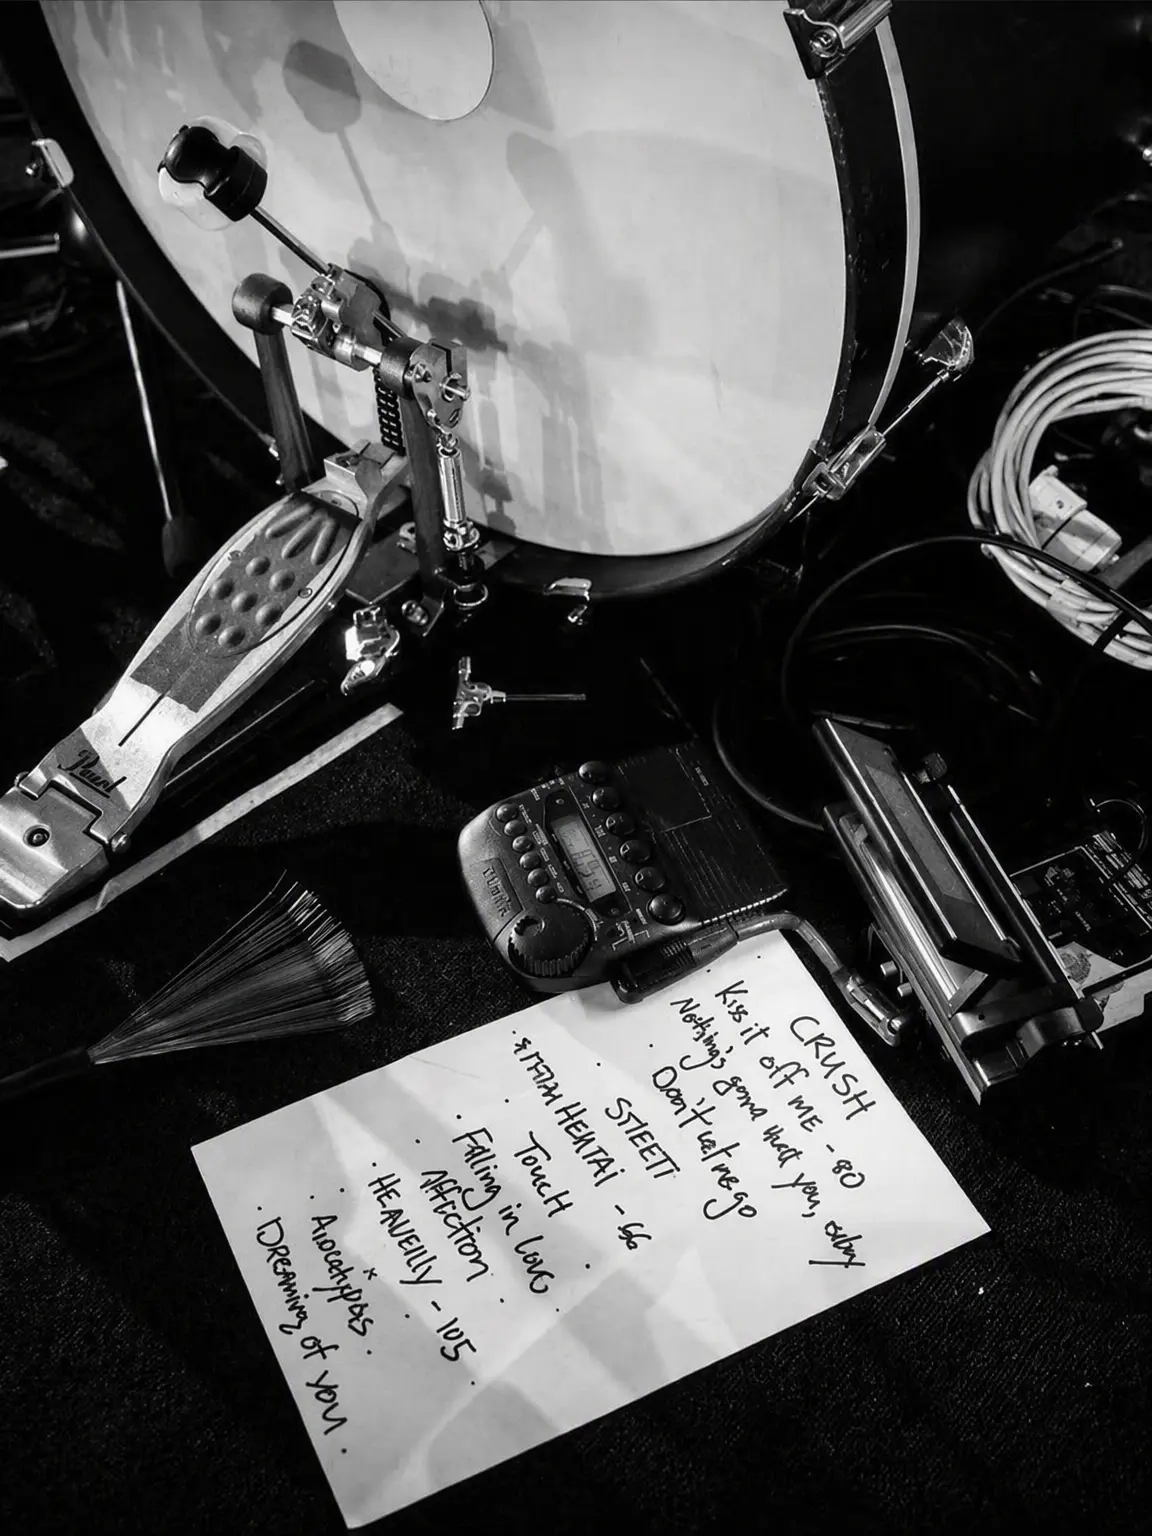 Pearl
CRUSH
Kiss it off ME - 80
Nothing's gonna hurt you, baby
Don't let me go
SWEET
HENTAI - 66
TOUCH
Falling in love
Affection
HEAVENLY - 105
Apocalypse
DREAMING of you